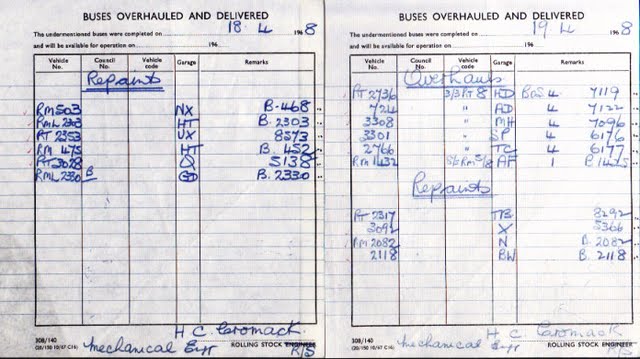 BUSES OVERHAULED AND DELIVERED
The undermentioned buses were completed on 18. 4 1968
and will be available for operation on 196
Vehicle No. Council No. Vehicle code Garage Remarks
Repaints
RM 503 NX B-468
RML 2303 HT B. 2303
RT 2353 UX 8573
RM 475 HT B. 452
RT 3028 5138
RML 2330 B B. 2330
H C. Cromack
308/140
(20/150 10/67 C16) Mechanical Engr ROLLING STOCK ENGINEER
R/S
BUSES OVERHAULED AND DELIVERED
The undermentioned buses were completed on 19 4 1968
and will be available for operation on 196
Vehicle No. Council No. Vehicle code Garage Remarks
Overhauls
RT 2736 3/3 RT 8 HD BDS 4 7119
724 " AD 4 7122
3308 " MH 4 7096
3301 " SP 4 6176
2766 " TC 4 6177
RM 1432 AF 1 B 1425
Repaints
RT 2317 TB 8292
3092 X 5366
RM 2082 N B. 2082
2118 BW B. 2118
H C. Cromack
308/140
(20/150 10/67 C16) Mechanical Engr ROLLING STOCK ENGINEER
R/S